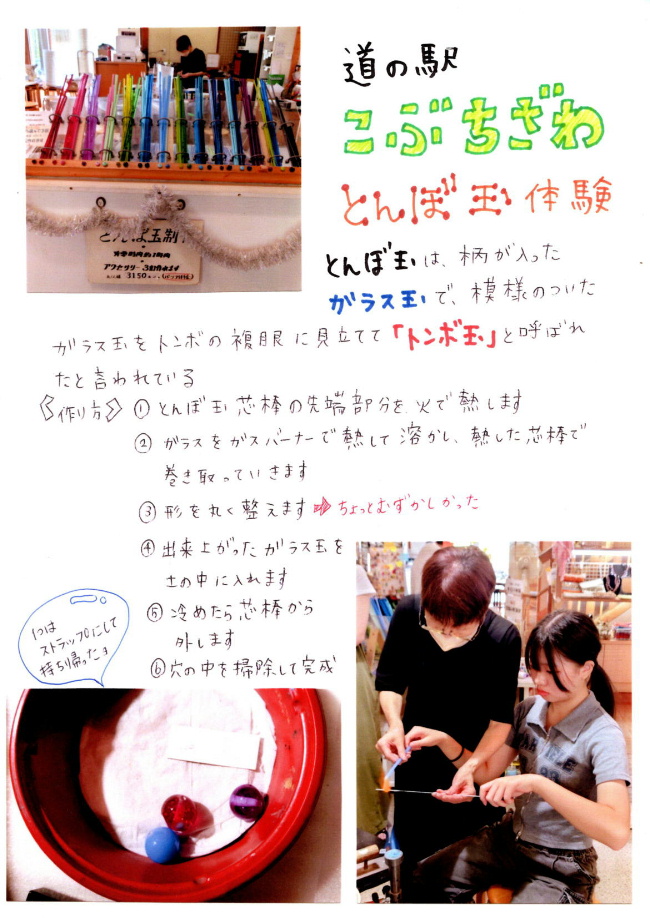 道の駅
こぶちざわ
とんぼ玉 体験
とんぼ玉は、柄が入った
ガラス玉で、模様のついた
ガラス玉をトンボの複眼に見立てて「トンボ玉」と呼ばれ
たと言われている
〈作り方〉① とんぼ玉芯棒の先端部分を火で熱します
② ガラスをガスバーナーで熱して溶かし、熱した芯棒で
巻き取っていきます
③ 形を丸く整えます ⇒ ちょっとむずかしかった
④ 出来上がったガラス玉を
土の中に入れます
⑤ 冷めたら芯棒から
外します
⑥ 穴の中を掃除して完成
1つは
ストラップにして
持ち帰ったョ
とんぼ玉制
アクセサリー
3150